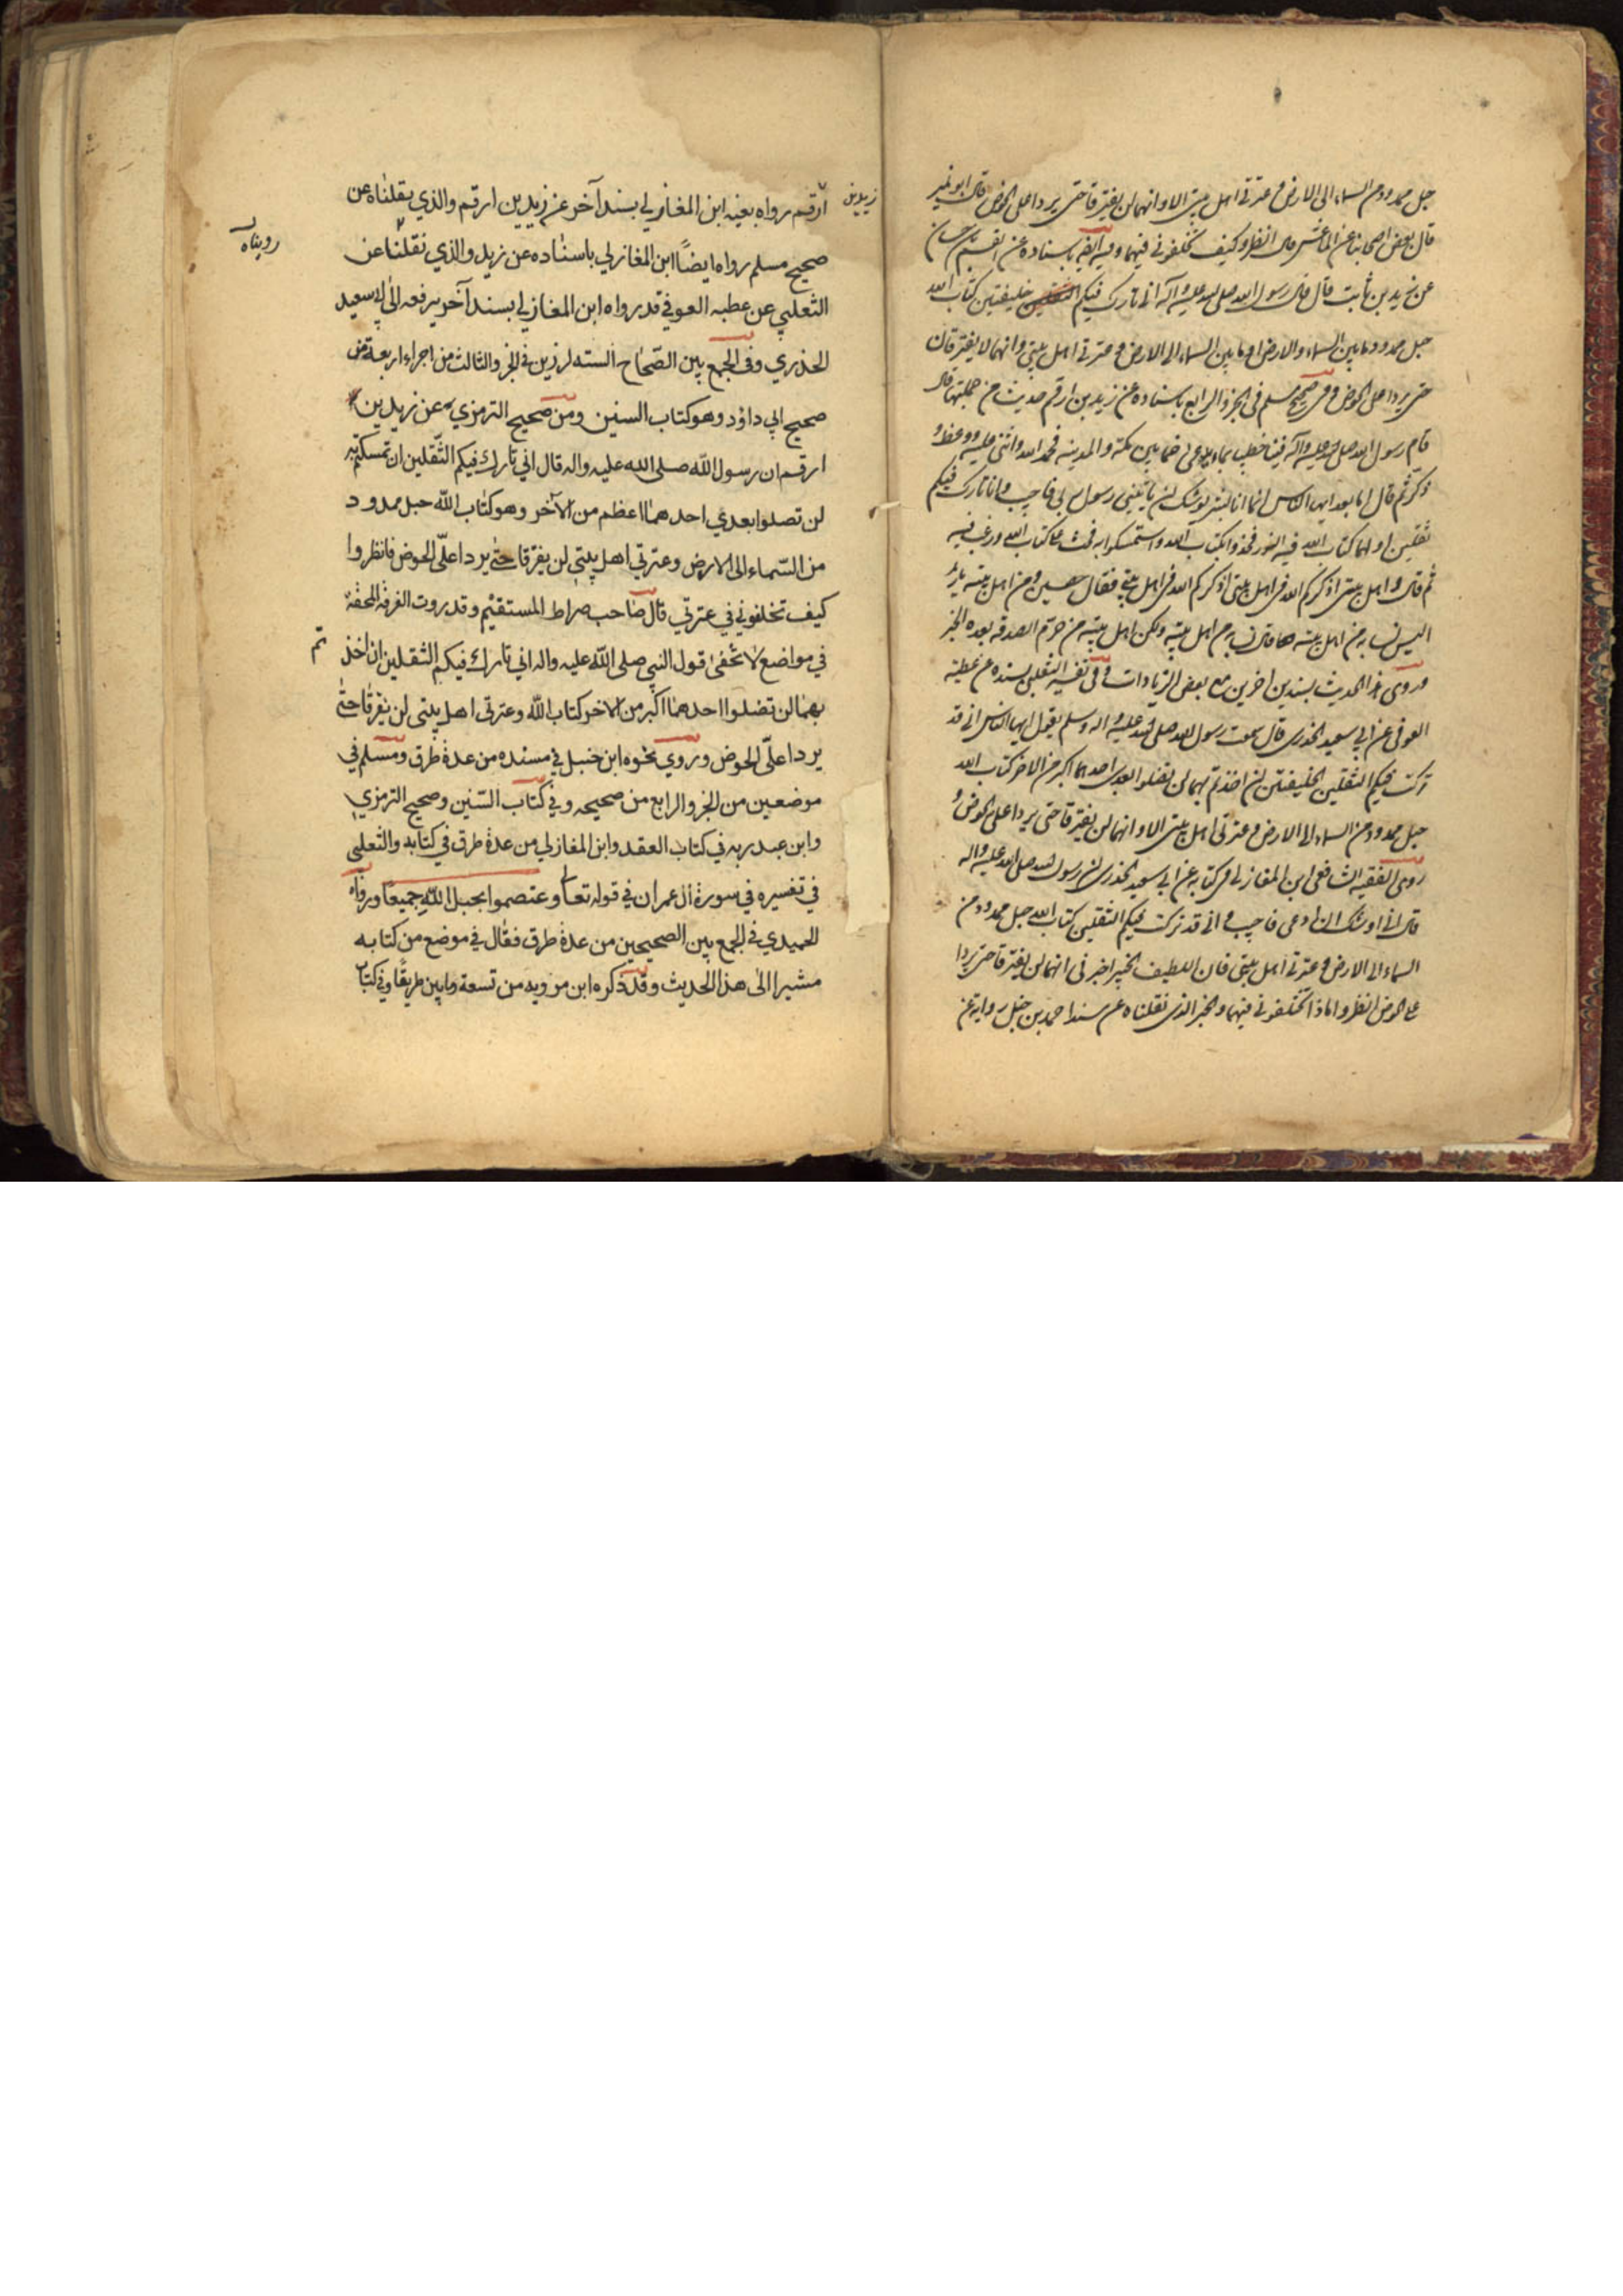 حبل ممدود من السماء الى الارض و عترتي اهل بيتي الا و انهما لن يفترقا حتى يردا على الحوض قال ابو نمير
قال بعض اصحابنا عن الاعمش قال انظروا كيف تخلفوني فيهما و فيه ايضا باسناده عن القسم بن حسان
عن زيد بن ثابت قال قال رسول الله صلى الله عليه و آله اني تارك فيكم الثقلين خليفتين كتاب الله
حبل ممدود ما بين السماء و الارض او ما بين السماء الى الارض و عترتي اهل بيتي و انهما لا يفترقان
حتى يردا على الحوض و في صحيح مسلم في الجزء الرابع باسناده عن زيد بن ارقم حديث من جملتها قال
قام رسول الله صلى الله عليه و آله فينا خطيبا بماء يدعى خما بين مكة و المدينه فحمد الله و اثنى عليه و وعظ و
ذكر ثم قال اما بعد ايها الناس انما انا بشر يوشك ان ياتيني رسول ربي فاجيب و انا تارك فيكم
ثقلين اولهما كتاب الله فيه النور فخذوا بكتاب الله و استمسكوا به فحث على كتاب الله و رغب فيه
ثم قال و اهل بيتي اذكركم الله في اهل بيتي اذكركم الله في اهل بيتي فقال حصين و من اهل بيته يا زيد
اليس نساءه من اهل بيته قال نساءه من اهل بيته و لكن اهل بيته من حرم الصدقه بعده الخبر
و روى هذا الحديث بسندين اخرين مع بعض الزيادات و في تفسير الثعلبي بسنده عن عطية
العوفي عن ابي سعيد الخدري قال سمعت رسول الله صلى الله عليه و اله و سلم يقول ايها الناس اني قد
تركت فيكم الثقلين الخليفتين ان اخذتم بهما لن تضلوا بعدي احدهما اكبر من الاخر كتاب الله
حبل ممدود من السماء الى الارض و عترتي اهل بيتي الا و انهما لن يفترقا حتى يردا على الحوض و
روى الفقيه الشافعي ابن المغازلي في كتابه عن ابي سعيد الخدري ان رسول الله صلى الله عليه و اله
قال اني اوشك ان ادعى فاجيب و اني قد تركت فيكم الثقلين كتاب الله حبل ممدود من
السماء الى الارض و عترتي اهل بيتي فان اللطيف الخبير اخبرني انهما لن يفترقا حتى يردا
على الحوض انظروا ماذا تخلفوني فيهما و الخبر الذي نقلناه عن مسند احمد بن حنبل رواية عن
زيد بن
ارقم رواه بعينه ابن المغازلي بسند آخر عن زيد بن ارقم والذي نقلناه عن
رويناه
صحيح مسلم رواه ايضًا ابن المغازلي باسناده عن زيد والذي نقلنا عن
الثعلبي عن عطيه العوفي قد رواه ابن المغازلي بسند آخر يرفعه الى ابي سعيد
الخذري وفي الجمع بين الصّحاح السته لرزين في الجزو الثالث من اجزاء اربعة من
صحيح ابي داؤد وهو كتاب السنين ومن صحيح الترمزي عن زيد بن
ارقم ان رسول الله صلى الله عليه واله قال اني تارك فيكم الثّقلين ان تمسكتم به
لن تصلوا بعدي احدهما اعظم من الآخر وهو كتاب الله حبل ممدود
من السّماء الى الارض وعترتي اهل بيتي لن يفرقا حتى يردا علّى الحوض فانظروا
كيف تخلفوني في عترتي قال صاحب صراط المستقيم وقد روت الفرقه المحقة
في مواضع لا تخفى قول النبي صلى الله عليه واله اني تارك فيكم الثقلين ان اخذ
تم
بهما لن تضلوا احدهما اكبر من الاخر كتاب الله وعترتي اهل بيتي لن يفرقا حتى
يردا علّى الحوض وروي نحوه ابن حنبل في مسنده من عدة طرق ومسلم في
موضعين من الجزو الرابع من صحيحه وفي كتاب السّنين وصحيح الترمزي
وابن عبد ربه في كتاب العقد وابن المغازلي من عدة طرق في كتابه والثعلبي
في تفسيره في سورة ال عمران في قوله تعالى وعتصموا بحبل الله جميعًا ورواه
الحميدي في الجمع بين الصحيحين من عدة طرق فقال في موضع من كتابه
مشيرا الى هذا الحديث وقد ذكره ابن مردويه من تسعة وثمانين طريقًا وفي كتاب